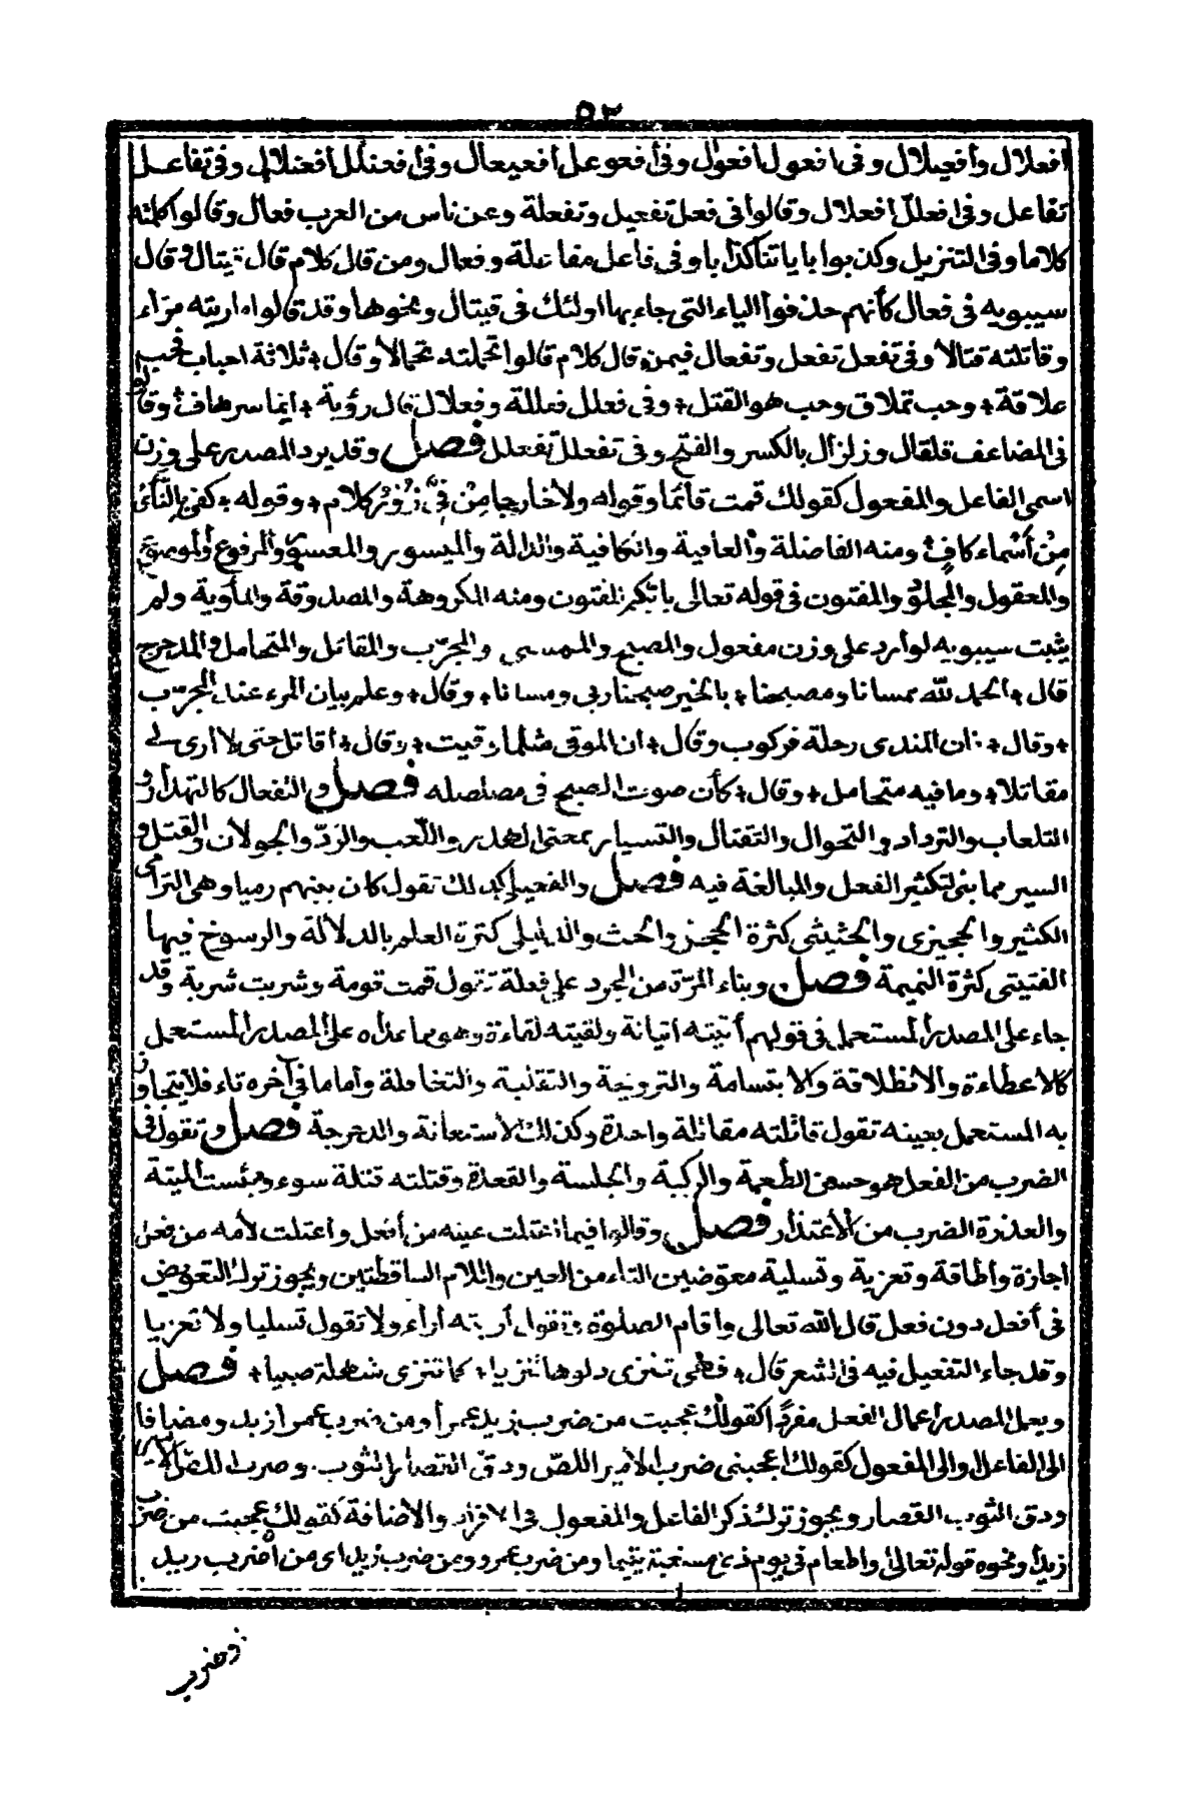 ٥٣
افعلال وأفعيلال وفى افعول افعوال وفى أفعوعل أفعيعال وفى أفعنلل أفعنلال وفى تفاعل
تفاعل وفى افعلل افعلال وقالوا فى فعل تفعيل وتفعلة وعن ناس من العرب فعال وقالوا كلمته
كلاما وفى التنزيل وكذبوا باياتنا كذابا وفى فاعل مفاعلة وفعال ومن قال كلام قال قيتال وقال
سيبويه فى فعال كأنهم حذفوا الياء التى جاء بها اولئك فى قيتال ونحوها وقد قالوا ماريته مراء
وقاتلته قتالا وفى تفعل تفعل وتفعال فيمن قال كلام قالوا تحملته تحمالا وقال ؛ ثلاثة احباب فحب
علاقة ؛ وحب تملاق وحب هو القتل ؛ وفى فعلل فعللة وفعلال قال رؤبة ؛ ايما سرهاف ؛ وقالوا
فى المضاعف قلقال وزلزال بالكسر والفتح وفى تفعلل تفعلل فصل وقد يرد المصدر على وزن
اسمى الفاعل والمفعول كقولك قمت قائما وقوله ولا خارجا مِنْ فِىَّ زُوْرُ كلام ؛ وقوله ؛ كفى بِالنَّأْىِ
مِنْ أَسْماء كافٍ ؛ ومنه الفاضلة والعافية والكافية والدالة والميسور والمعسور والمرفوع والموضوع
والمعقول والمجلود والمفتون فى قوله تعالى بايكم المفتون ومنه المكروهة والمصدوقة والمأوية ولم
يثبت سيبويه الوارد على وزن مفعول والمصبح والممسى والمجرّب والمقاتل والمتحامل والمدحرج
قال ؛ الحمد لله ممسانا ومصبحنا ؛ بالخير صبحنا ربى ومسانا ؛ وقال ؛ وعلم بيان المرء عند المجرّب
؛ وقال ؛ ان المندى رحلة فركوب وقال ؛ ان الموقى مثلما وقيت ؛ وقال ؛ أقاتل حتى لا ارى لى
مقاتلا ؛ وما فيه متحامل ؛ وقال ؛ كأن صوت الصبح فى مصلصله فصل والتفعال كالتهدار و
التلعاب والترداد والتجوال والتقتال والتسيار بمعنى الهدر واللّعب والردّ والجولان والقتل و
السير مما بنى لتكثير الفعل والمبالغة فيه فصل والفعيلى كذلك تقول كان بينهم رميا وهى الترامى
الكثير والحجيزى والحثيثى كثرة الحجز والحث والدليلى كثرة العلم بالدلالة والرسوخ فيها
القتيتى كثرة النميمة فصل وبناء المرّة من المجرد على فعلة تقول قمت قومة وشربت شربة وقد
جاء على المصدر المستعمل فى قولهم أتيته اتيانة ولقيته لقاءة وهو مما عداه على المصدر المستعمل
كالاعطاءة والانطلاقة والابتسامة والترويحة والتقلبة والتغافلة وأما ما فى آخره تاء فلا يتجاوز
به المستعمل بعينه تقول قاتلته مقاتلة واحدة وكذلك الاستعانة والدحرجة فصل وتقول فى
الضرب من الفعل هو حسن الطّعمة والركبة والجلسة والقعدة وقتلته قتلة سوء وبئست الميتة
والعذرة الضرب من الاعتذار فصل وقالوا فيما اعتلت عينه من أفعل واعتلت لامه من فعل
اجازة واطاقة وتعزية وتسلية معوّضين التاء من العين واللام الساقطتين ويجوز ترك التعويض
فى أفعل دون فعل قال الله تعالى واقام الصلوة وتقول أريته اراء ولا تقول تسليا ولا تعزيا
وقد جاء التفعيل فيه فى الشعر قال ؛ فهى تنزى دلوها تنزيا ؛ كما تنزى شهلة صبيا ؛ فصل
ويعمل المصدر اعمال الفعل مفردًا كقولك عجبت من ضرب زيد عمرا ومن ضرب عمرا زيد ومضافا
الى الفاعل او الى المفعول كقولك اعجبنى ضرب الامير اللصّ ودقّ القصار الثوب . وضرب اللصّ الامير
ودق الثوب القصار ويجوز ترك ذكر الفاعل والمفعول فى الافراد والاضافة كقولك عجبت من ضرب
زيدا ونحوه قوله تعالى أو اطعام فى يوم ذى مسغبة يتيما ومن ضرب عمرو ومن ضرب زيد اى من أن ضرب زيد
وضرب